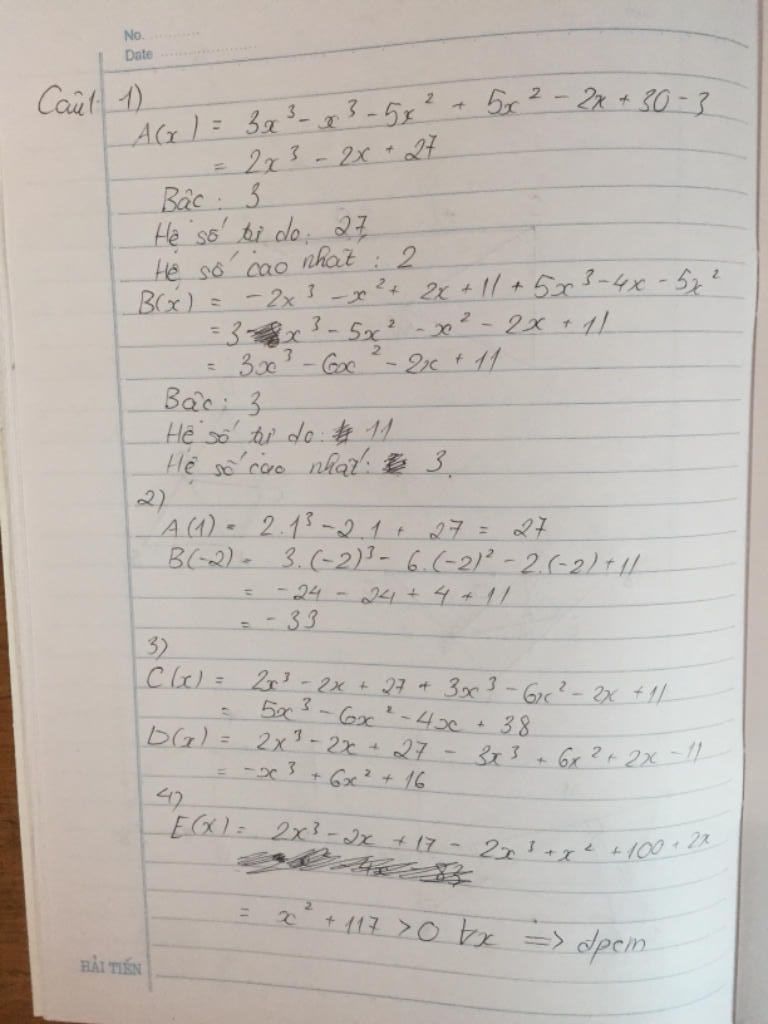 No. ............
Date ....................
Câu 1 1)
A(x) = 3x³ - x³ - 5x² + 5x² - 2x + 30 - 3
= 2x³ - 2x + 27
Bậc : 3
Hệ số tự do: 27
Hệ số cao nhất : 2
B(x) = -2x³ - x² + 2x + 11 + 5x³ - 4x - 5x²
= 3x³ - 5x² - x² - 2x + 11
= 3x³ - 6x² - 2x + 11
Bậc : 3
Hệ số tự do: 11
Hệ số cao nhất: 3.
2)
A(1) = 2.1³ - 2.1 + 27 = 27
B(-2) = 3.(-2)³ - 6.(-2)² - 2.(-2) + 11
= -24 - 24 + 4 + 11
= -33
3)
C(x) = 2x³ - 2x + 27 + 3x³ - 6x² - 2x + 11
= 5x³ - 6x² - 4x + 38
D(x) = 2x³ - 2x + 27 - 3x³ + 6x² + 2x - 11
= -x³ + 6x² + 16
4)
E(x) = 2x³ - 2x + 17 - 2x³ + x² + 100 + 2x
= x² + 117 > 0 ∀x => đpcm
HẢI TIẾN